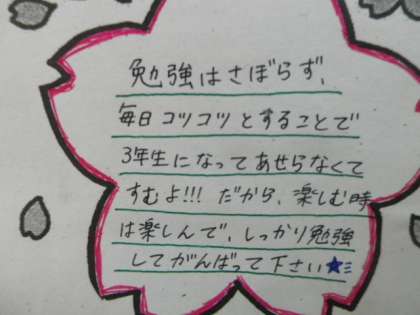 勉強はさぼらず、
毎日コツコツとすることで
3年生になってあせらなくて
すむよ!!! だから、楽しむ時
は楽しんで、しっかり勉強
してがんばって下さい★ミ